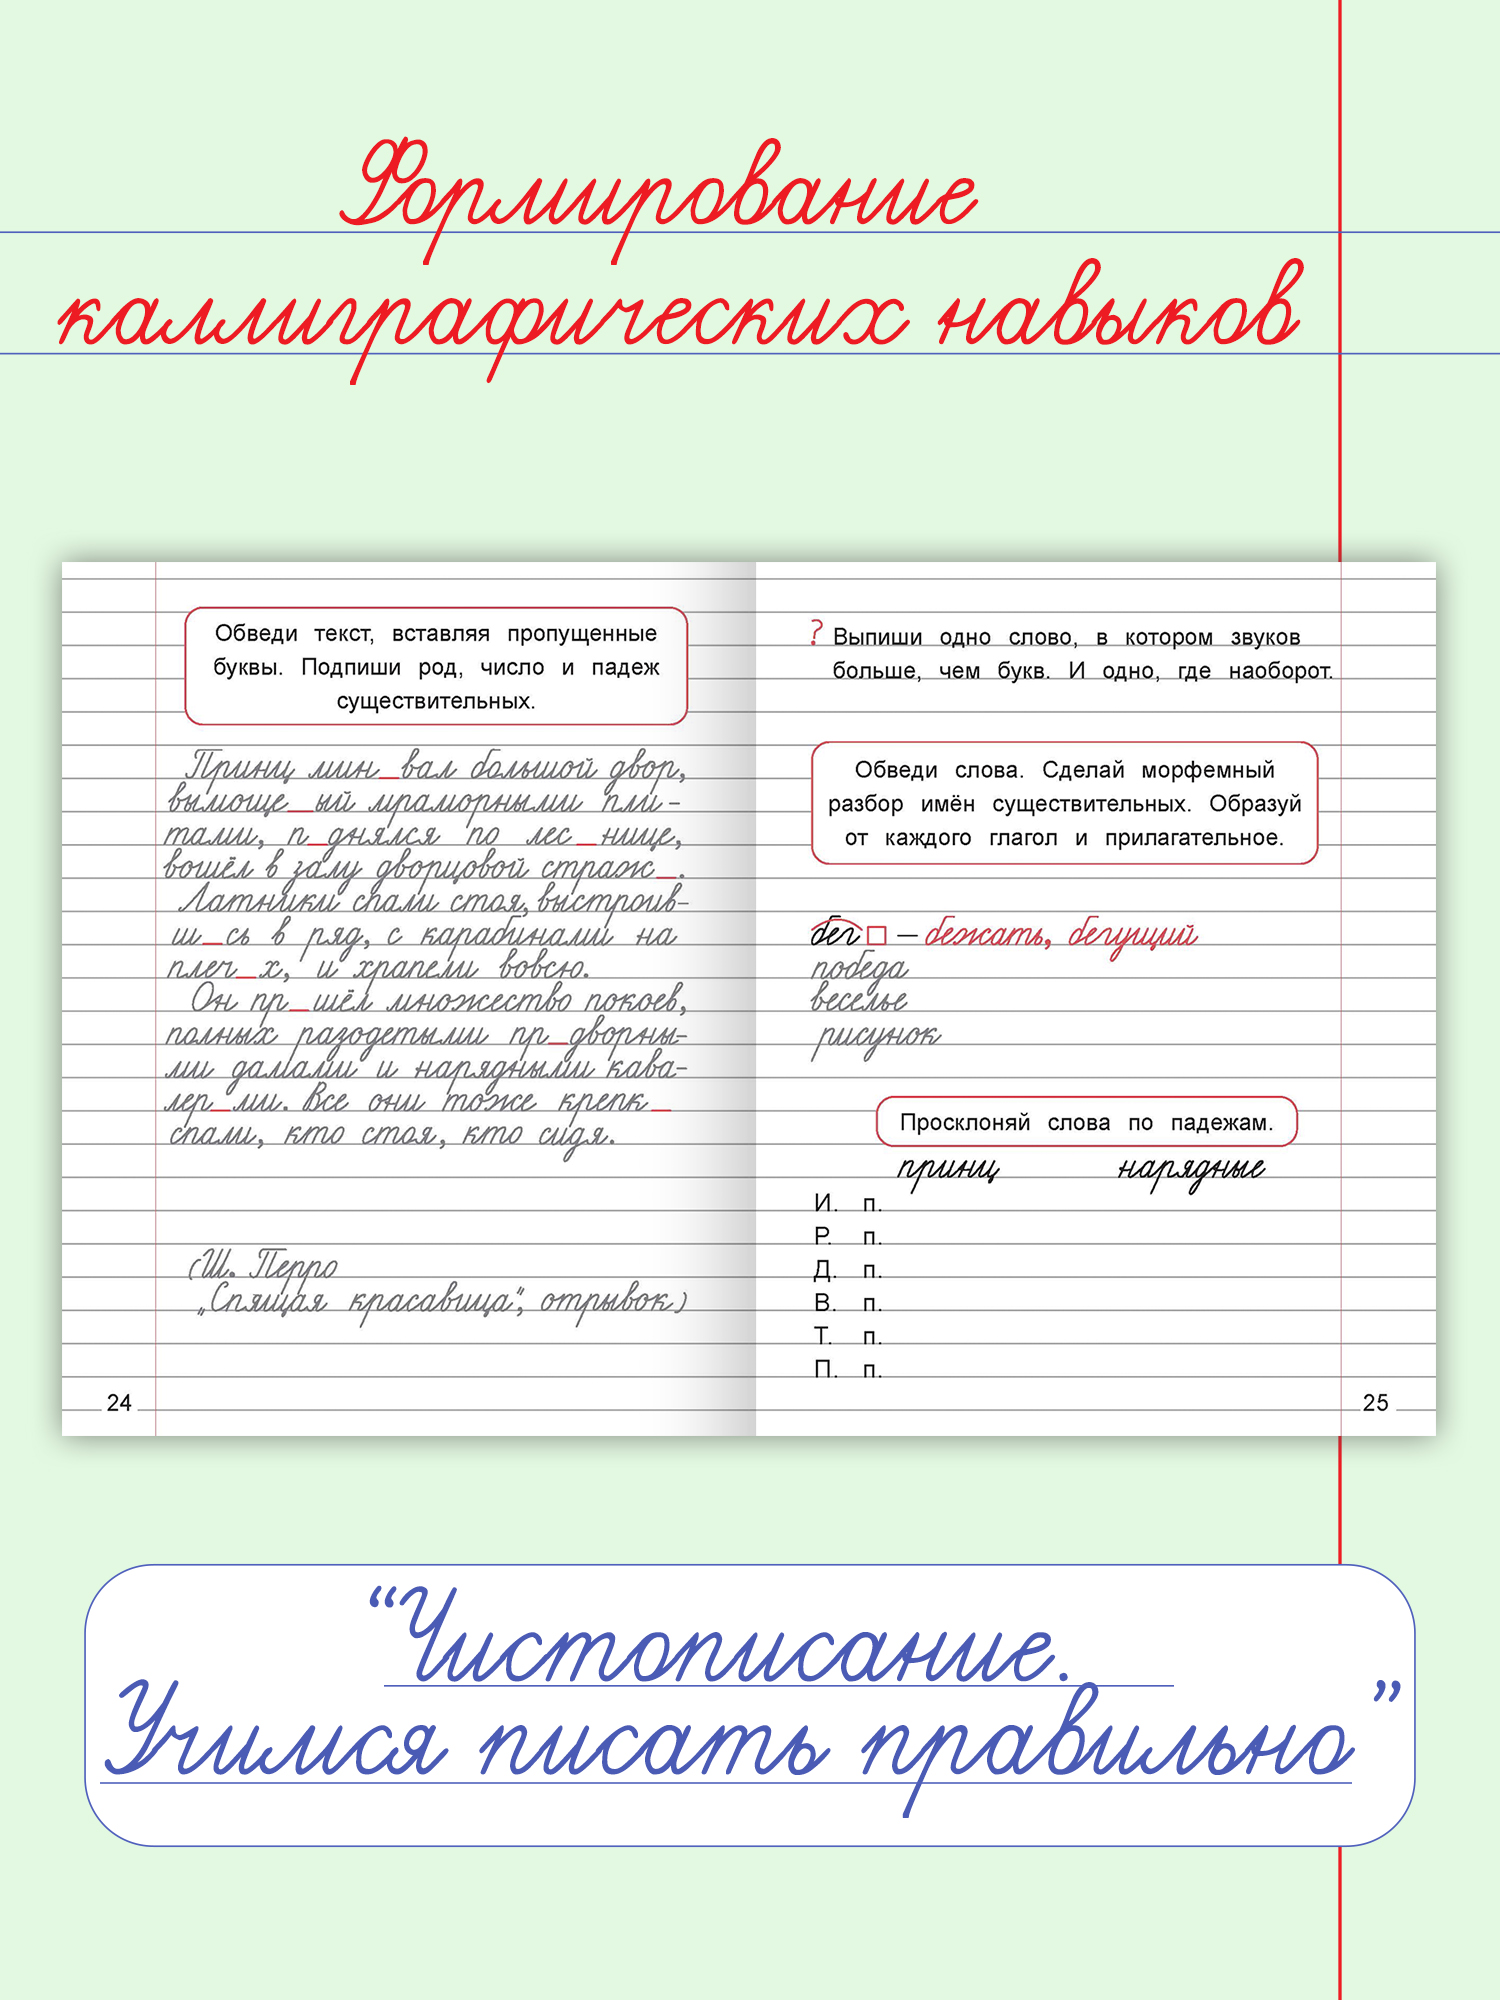 Формирование
каллиграфических навыков
Обведи текст, вставляя пропущенные
буквы. Подпиши род, число и падеж
существительных.
Принц мин_вал большой двор,
вымоще_ый мраморными пли-
тами, п_днялся по лес_нице,
вошёл в залу дворцовой страж_.
Латники спали стоя, выстроив-
ш_сь в ряд, с карабинами на
плеч_х, и храпели вовсю.
Он пр_шёл множество покоев,
полных разодетыми пр_дворны-
ми дамами и нарядными кава-
лер_ми. Все они тоже крепк_
спали, кто стоя, кто сидя.
(Ш. Перро
„Спящая красавица“, отрывок)
24
? Выпиши одно слово, в котором звуков
больше, чем букв. И одно, где наоборот.
Обведи слова. Сделай морфемный
разбор имён существительных. Образуй
от каждого глагол и прилагательное.
бег – бежать, бегущий
победа
веселье
рисунок
Просклоняй слова по падежам.
принц нарядные
И. п.
Р. п.
Д. п.
В. п.
Т. п.
П. п.
25
“Чистописание.
Учимся писать правильно”